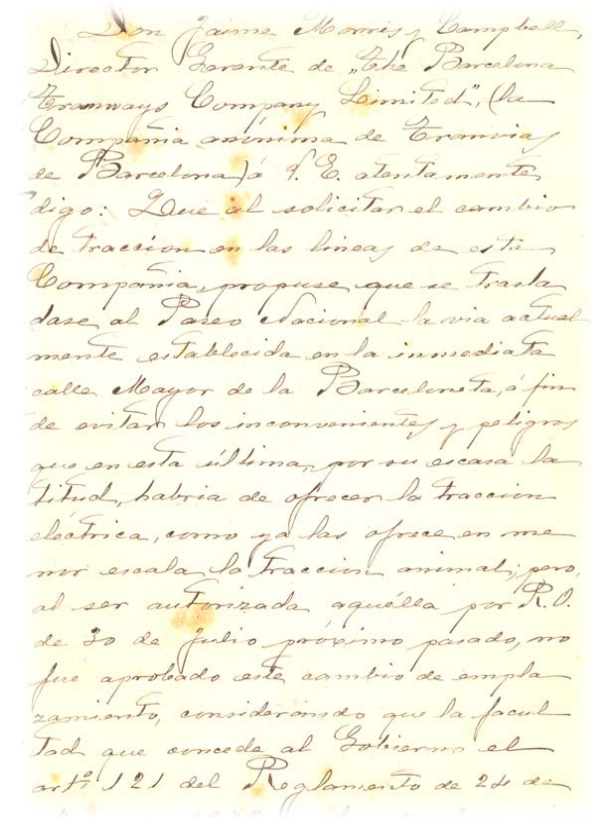 Don Jaime Morris y Campbell,
Director Gerente de „The Barcelona
Tramways Company Limited", (la
Compañia anónima de Tranvias
de Barcelona) á V. E. atentamente
digo: Que al solicitar el cambio
de traccion en las lineas de esta
Compañia, propuse que se trasla
dase al Paseo Nacional la via actual
mente establecida en la inmediata
calle Mayor de la Barceloneta, á fin
de evitar los inconvenientes y peligros
que en esta última, por su escasa la
titud, habria de ofrecer la traccion
eléctrica, como ya las ofrece en me
nor escala la traccion animal; pero,
al ser autorizada aquélla por R. O.
de 30 de Julio próximo pasado, no
fué aprobado este cambio de empla
zamiento, considerando que la facul
tad que concede al Gobierno el
artº 121 del Reglamento de 24 de